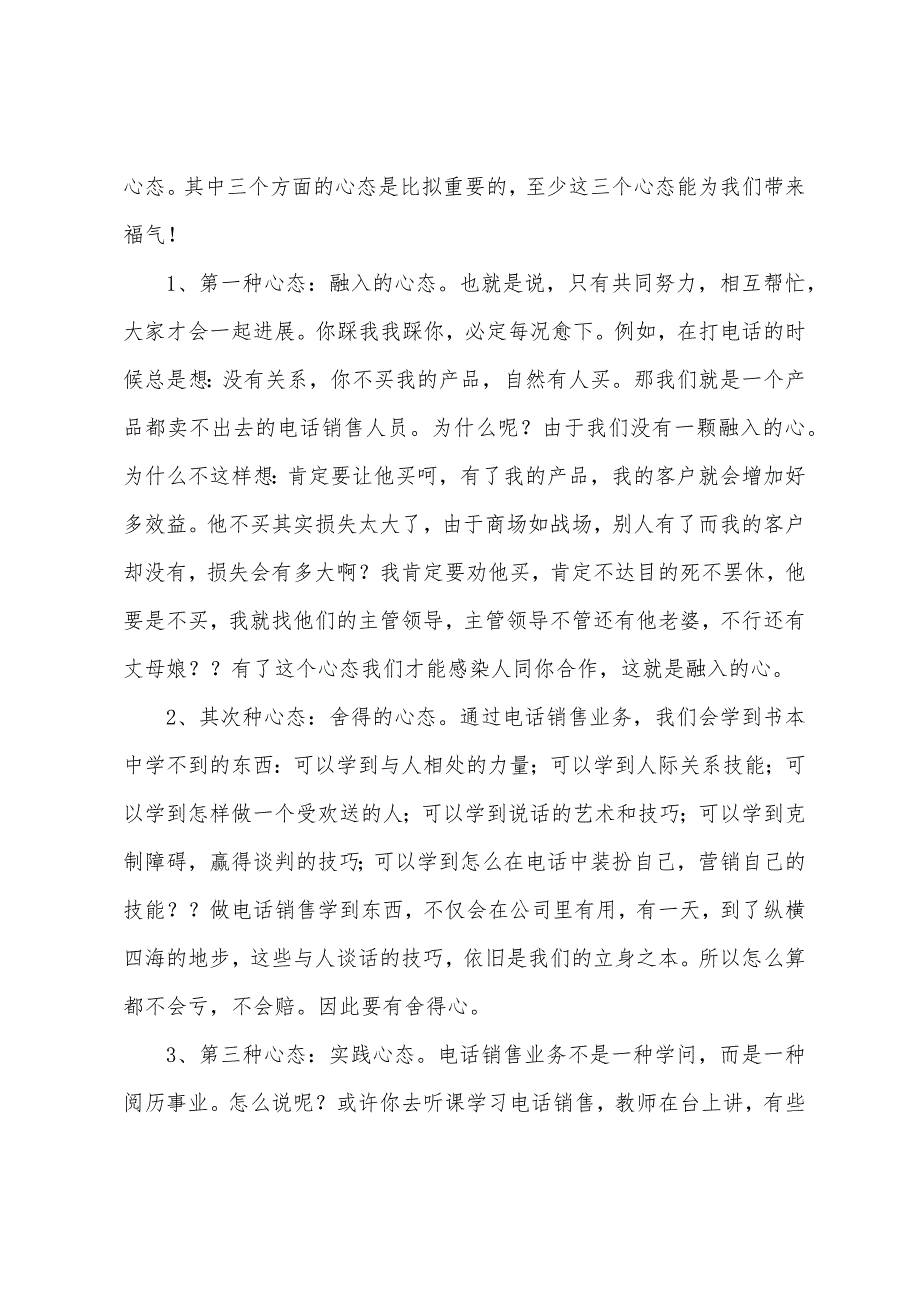 心态。其中三个方面的心态是比拟重要的，至少这三个心态能为我们带来
福气！
1、第一种心态：融入的心态。也就是说，只有共同努力，相互帮忙，
大家才会一起进展。你踩我我踩你，必定每况愈下。例如，在打电话的时
候总是想：没有关系，你不买我的产品，自然有人买。那我们就是一个产
品都卖不出去的电话销售人员。为什么呢？由于我们没有一颗融入的心。
为什么不这样想：肯定要让他买呵，有了我的产品，我的客户就会增加好
多效益。他不买其实损失太大了，由于商场如战场，别人有了而我的客户
却没有，损失会有多大啊？我肯定要劝他买，肯定不达目的死不罢休，他
要是不买，我就找他们的主管领导，主管领导不管还有他老婆，不行还有
丈母娘？？有了这个心态我们才能感染人同你合作，这就是融入的心。
2、其次种心态：舍得的心态。通过电话销售业务，我们会学到书本
中学不到的东西：可以学到与人相处的力量；可以学到人际关系技能；可
以学到怎样做一个受欢送的人；可以学到说话的艺术和技巧；可以学到克
制障碍，赢得谈判的技巧；可以学到怎么在电话中装扮自己，营销自己的
技能？？做电话销售学到东西，不仅会在公司里有用，有一天，到了纵横
四海的地步，这些与人谈话的技巧，依旧是我们的立身之本。所以怎么算
都不会亏，不会赔。因此要有舍得心。
3、第三种心态：实践心态。电话销售业务不是一种学问，而是一种
阅历事业。怎么说呢？或许你去听课学习电话销售，教师在台上讲，有些